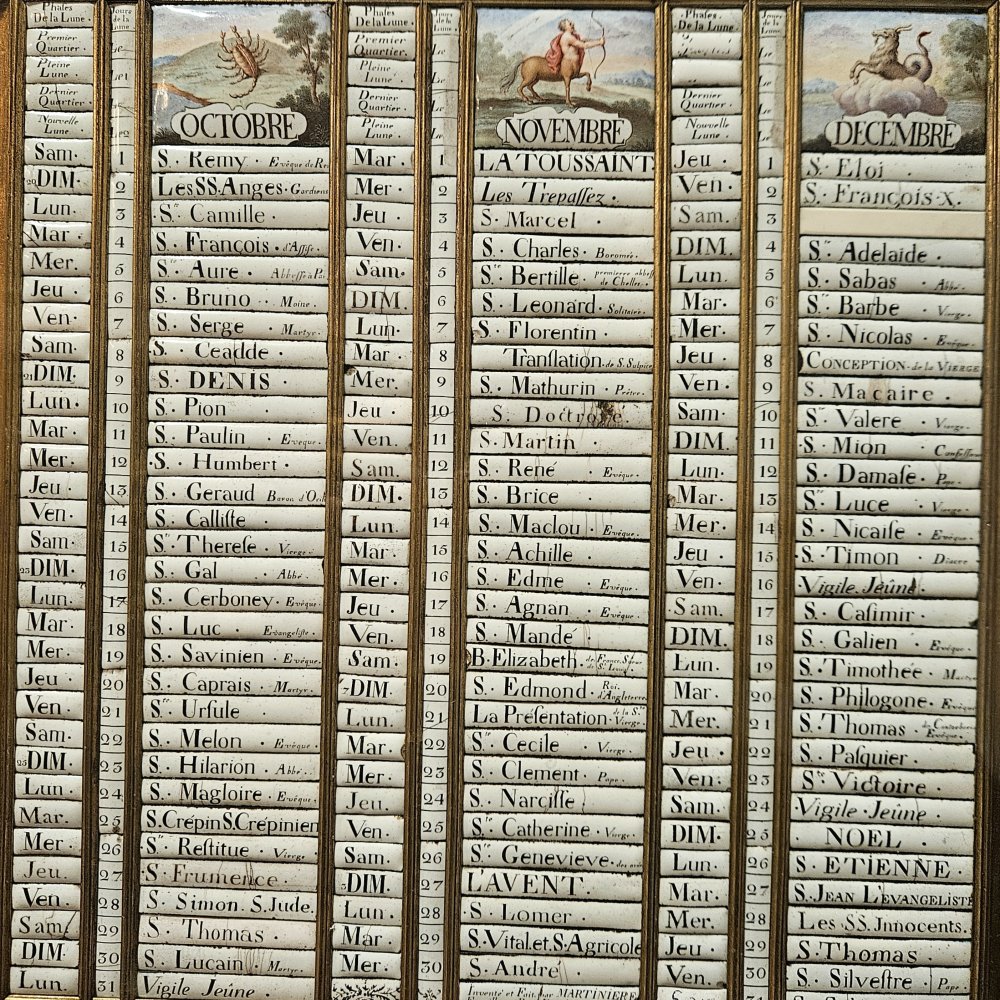 Phases De la Lune.
Jours de la Lune
Premier Quartier.
Pleine Lune.
Dernier Quartier.
Nouvelle Lune.
OCTOBRE
Sam. 1 S. Remy. Evêque de
DIM. 2 Les SS. Anges. Gardiens
Lun. 3 Ste Camille.
Mar. 4 S. François. d'Assise.
Mer. 5 Ste Aure. Abbesse à
Jeu. 6 S. Bruno. Moine.
Ven. 7 S. Serge. Martyr.
Sam. 8 S. Ceadde.
DIM. 9 S. DENIS.
Lun. 10 S. Pion
Mar. 11 S. Paulin. Evêque.
Mer. 12 S. Humbert.
Jeu. 13 S. Geraud Baron
Ven. 14 S. Calliſte
Sam. 15 Ste Thereſe. Vierge.
DIM. 16 S. Gal. Abbé.
Lun. 17 S. Cerboney. Evêque.
Mar. 18 S. Luc. Evangeliſte.
Mer. 19 S. Savinien. Evêque.
Jeu 20 S. Caprais. Martyr.
Ven. 21 Ste Urſule.
Sam. 22 S. Melon. Evêque.
DIM. 23 S. Hilarion. Abbé.
Lun. 24 S. Magloire. Evêque.
Mar. 25 S. Crépin S. Crépinien
Mer. 26 Ste Reſtitue. Vierge
Jeu. 27 S. Frumence.
Ven. 28 S. Simon. S. Jude.
Sam. 29 S. Thomas.
DIM. 30 S. Lucain. Martyr.
Lun. 31 Vigile Jeûne.
Phases De la Lune.
Jours de la Lune
Premier Quartier.
Pleine Lune.
Dernier Quartier.
Pleine Lune.
NOVEMBRE
Mar. 1 LA TOUSSAINT.
Mer. 2 Les Trepaſſez.
Jeu. 3 S. Marcel
Ven. 4 S. Charles. Boromée.
Sam. 5 Ste Bertille. premiere abbeſſe de Chelles.
DIM. 6 S. Leonard. Solitaire.
Lun. 7 S. Florentin.
Mar. 8 Tranſlation. de S. Sulpice
Mer. 9 S. Mathurin. Prêtre.
Jeu. 10 S.
Ven. 11 S. Martin
Sam. 12 S. René. Evêque.
DIM. 13 S. Brice
Lun. 14 S. Maclou. Evêque.
Mar. 15 S. Achille.
Mer. 16 S. Edme. Evêque.
Jeu. 17 S. Agnan. Evêque.
Ven. 18 S. Mandé
Sam. 19 B. Elizabeth. de France. Sœur de St. Louis.
DIM. 20 S. Edmond. Roi. d'Angleterre.
Lun. 21 La Préſentation. de la Ste Vierge.
Mar. 22 Ste Cecile. Vierge.
Mer. 23 S. Clement. Pape.
Jeu. 24 S. Narciſſe.
Ven. 25 Ste Catherine. Vierge.
Sam. 26 Ste Genevieve.
DIM. 27 L'AVENT.
Lun. 28 S. Lomer.
Mar. 29 S. Vital. et. S. Agricole
Mer. 30 S. André
Inventé et Fait par MARTINIERE
Phases De la Lune.
Jours de la Lune
Dernier Quartier.
Nouvelle Lune
DECEMBRE
Jeu. 1 S. Eloi
Ven. 2 S. François. X.
Sam. 3
DIM. 4 Ste Adelaïde.
Lun. 5 S. Sabas Abbé.
Mar. 6 Ste Barbe Vierge.
Mer. 7 S. Nicolas Evêque.
Jeu. 8 CONCEPTION. de la VIERGE
Ven. 9 S. Macaire.
Sam. 10 Ste Valere. Vierge.
DIM. 11 S. Mion
Lun. 12 S. Damaſe. Pape.
Mar. 13 Ste Luce. Vierge.
Mer. 14 S. Nicaiſe. Evêque.
Jeu. 15 S. Timon Diacre.
Ven. 16 Vigile. Jeûne.
Sam. 17 S. Caſimir.
DIM. 18 S. Galien. Evêque.
Lun. 19 S. Timothée.
Mar. 20 S. Philogone. Evêque
Mer. 21 S. Thomas
Jeu. 22 S. Paſquier.
Ven. 23 Ste Victoire.
Sam. 24 Vigile. Jeûne.
DIM. 25 NOEL.
Lun. 26 S. ETIENNE.
Mar. 27 S. JEAN L'EVANGELISTE
Mer. 28 Les SS. Innocents.
Jeu. 29 S. Thomas.
Ven. 30 S. Silveſtre. Pape